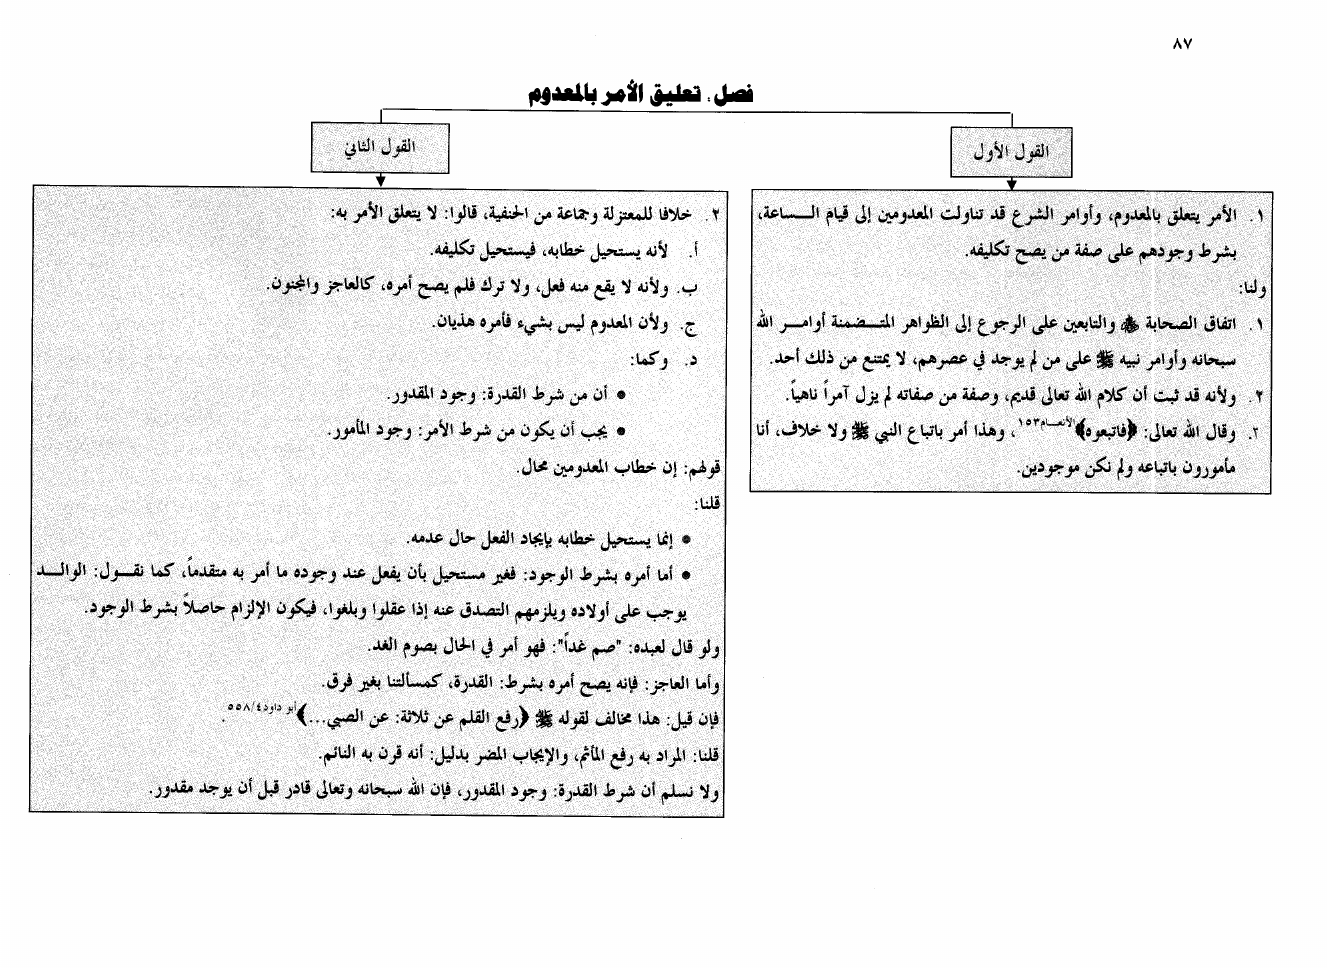 ٨٧
فصل: تعليق الأمر بالمعدوم
القول الأول
١. الأمر يتعلق بالمعدوم، وأوامر الشرع قد تناولت المعدومين إلى قيام الساعة،
بشرط وجودهم على صفة من يصح تكليفه.
ولنا:
١. اتفاق الصحابة ﷺ والتابعين على الرجوع إلى الظواهر المتضمنة أوامر الله
سبحانه وأوامر نبيه ﷺ على من لم يوجد في عصرهم، لا يمتنع من ذلك أحد.
٢. ولأنه قد ثبت أن كلام الله تعالى قديم، وصفة من صفاته لم يزل آمراً ناهياً.
٢. وقال الله تعالى: ﴿فاتبعوه﴾ الأنعام١٥٣، وهذا أمر باتباع النبي ﷺ ولا خلاف، أنا
مأمورون باتباعه ولم نكن موجودين.
القول الثاني
٢. خلافا للمعتزلة وجماعة من الحنفية، قالوا: لا يتعلق الأمر به:
أ. لأنه يستحيل خطابه، فيستحيل تكليفه.
ب. ولأنه لا يقع منه فعل، ولا ترك فلم يصح أمره، كالعاجز والمجنون.
ج. ولأن المعدوم ليس بشيء فأمره هذيان.
د. وكما:
• أن من شرط القدرة: وجود المقدور.
• يجب أن يكون من شرط الأمر: وجود المأمور.
قولهم: إن خطاب المعدومين محال.
قلنا:
• إنما يستحيل خطابه بإيجاد الفعل حال عدمه.
• أما أمره بشرط الوجود: فغير مستحيل بأن يفعل عند وجوده ما أمر به متقدماً، كما نقول: الوالد
يوجب على أولاده ويلزمهم التصدق عنه إذا عقلوا وبلغوا، فيكون الإلزام حاصلاً بشرط الوجود.
ولو قال لعبده: "صم غداً": فهو أمر في الحال بصوم الغد.
وأما العاجز: فإنه يصح أمره بشرط: القدرة، كمسألتنا بغير فرق.
فإن قيل: هذا مخالف لقوله ﷺ ﴿رفع القلم عن ثلاثة: عن الصبي...﴾ أبو داود٥٥٨/٤.
قلنا: المراد به رفع المأثم، والإيجاب المضر بدليل: أنه قرن به النائم.
ولا نسلم أن شرط القدرة: وجود المقدور، فإن الله سبحانه وتعالى قادر قبل أن يوجد مقدور.